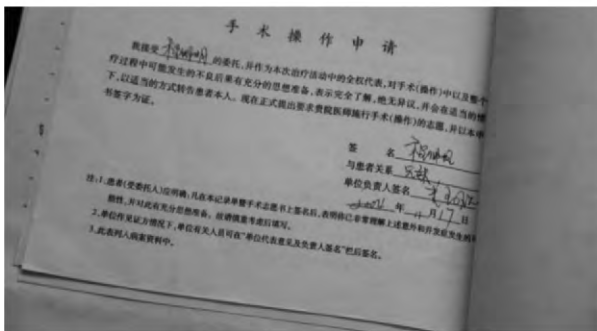 手术操作申请
我接受 的委托,并作为本次治疗活动中的全权代表,对手术(操作)中以及整个
疗过程中可能发生的不良后果有充分的思想准备,表示完全了解,他无异议,并会在适当的情
下,以适当的方式转告患者本人。现在正式提出要求贵院医师施行手术(操作)的志愿,并以本申
书签字为证。
签 名
与患者关系
单位负责人签名
年 月17日
注:1.患者(受委托人)应明确:凡在本记录单暨手术志愿书上签名后,表明你已非常理解上述意外和并发症发生的
性,并对此有充分思想准备。故请慎重考虑后填写。
2.单位作见证方情况下,单位有关人员可在“单位代表意见及负责人签名”栏后签名。
3.此表列入病案资料中。